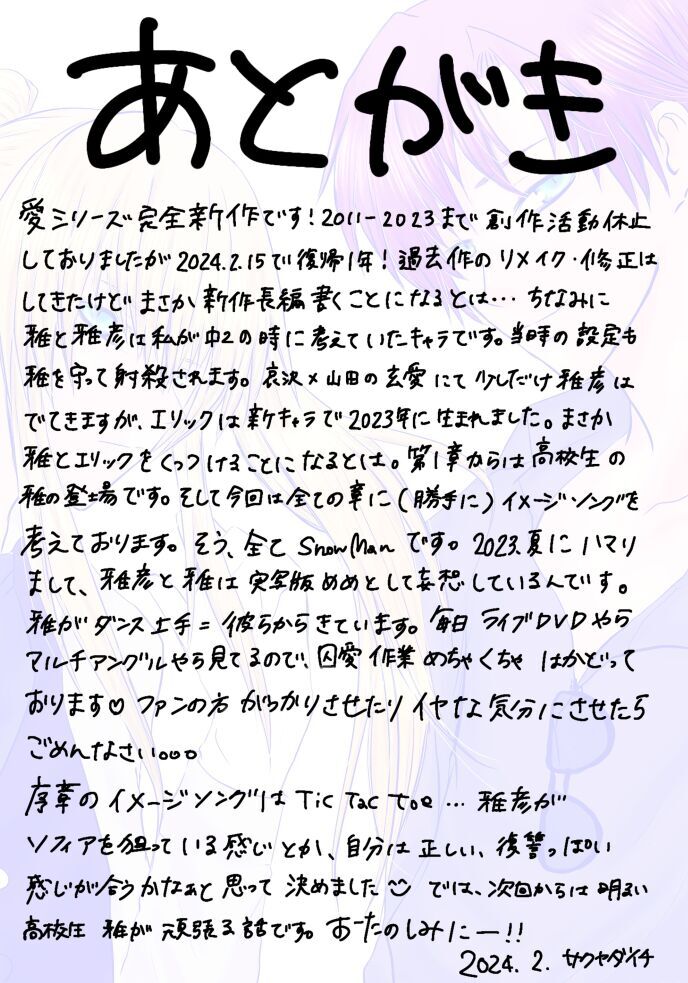 あとがき
愛シリーズ完全新作です!2011-2023まで創作活動休止
しておりましたが2024.2.15で復帰1年!過去作のリメイク・修正は
してきたけどまさか新作長編書くことになるとは…ちなみに
雅と雅彦は私が中2の時に考えていたキャラです。当時の設定も
雅を守って射殺されます。哀沢×山田の玄愛にて少しだけ雅彦は
でてきますが、エリックは新キャラで2023年に生まれました。まさか
雅とエリックをくっつけることになるとは。第1章からは高校生の
雅の登場です。そして今回は全ての章に(勝手に)イメージソングを
考えております。そう、全てSnowManです。2023.夏にハマり
まして、雅彦と雅は実写版めめとして妄想しているんです。
雅がダンス上手=彼らからきています。毎日ライブDVDやら
マルチアングルやら見てるので、囚愛作業めちゃくちゃはかどって
おります♡ファンの方がっかりさせたりイヤな気分にさせたら
ごめんなさい。。。
序章のイメージソングはTic Tac Toe…雅彦が
ソフィアを狙っている感じとか、自分は正しい、復讐っぽい
感じが合うかなぁと思って決めました☺では、次回からは明るい
高校生雅が頑張る話です。おーたのしみにー!!
2024.2.サクヤダイチ